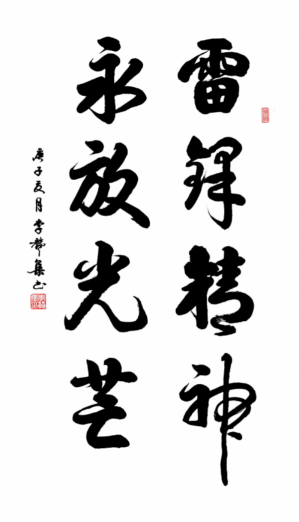 雷锋精神
永放光芒
庚子夏月李静集山